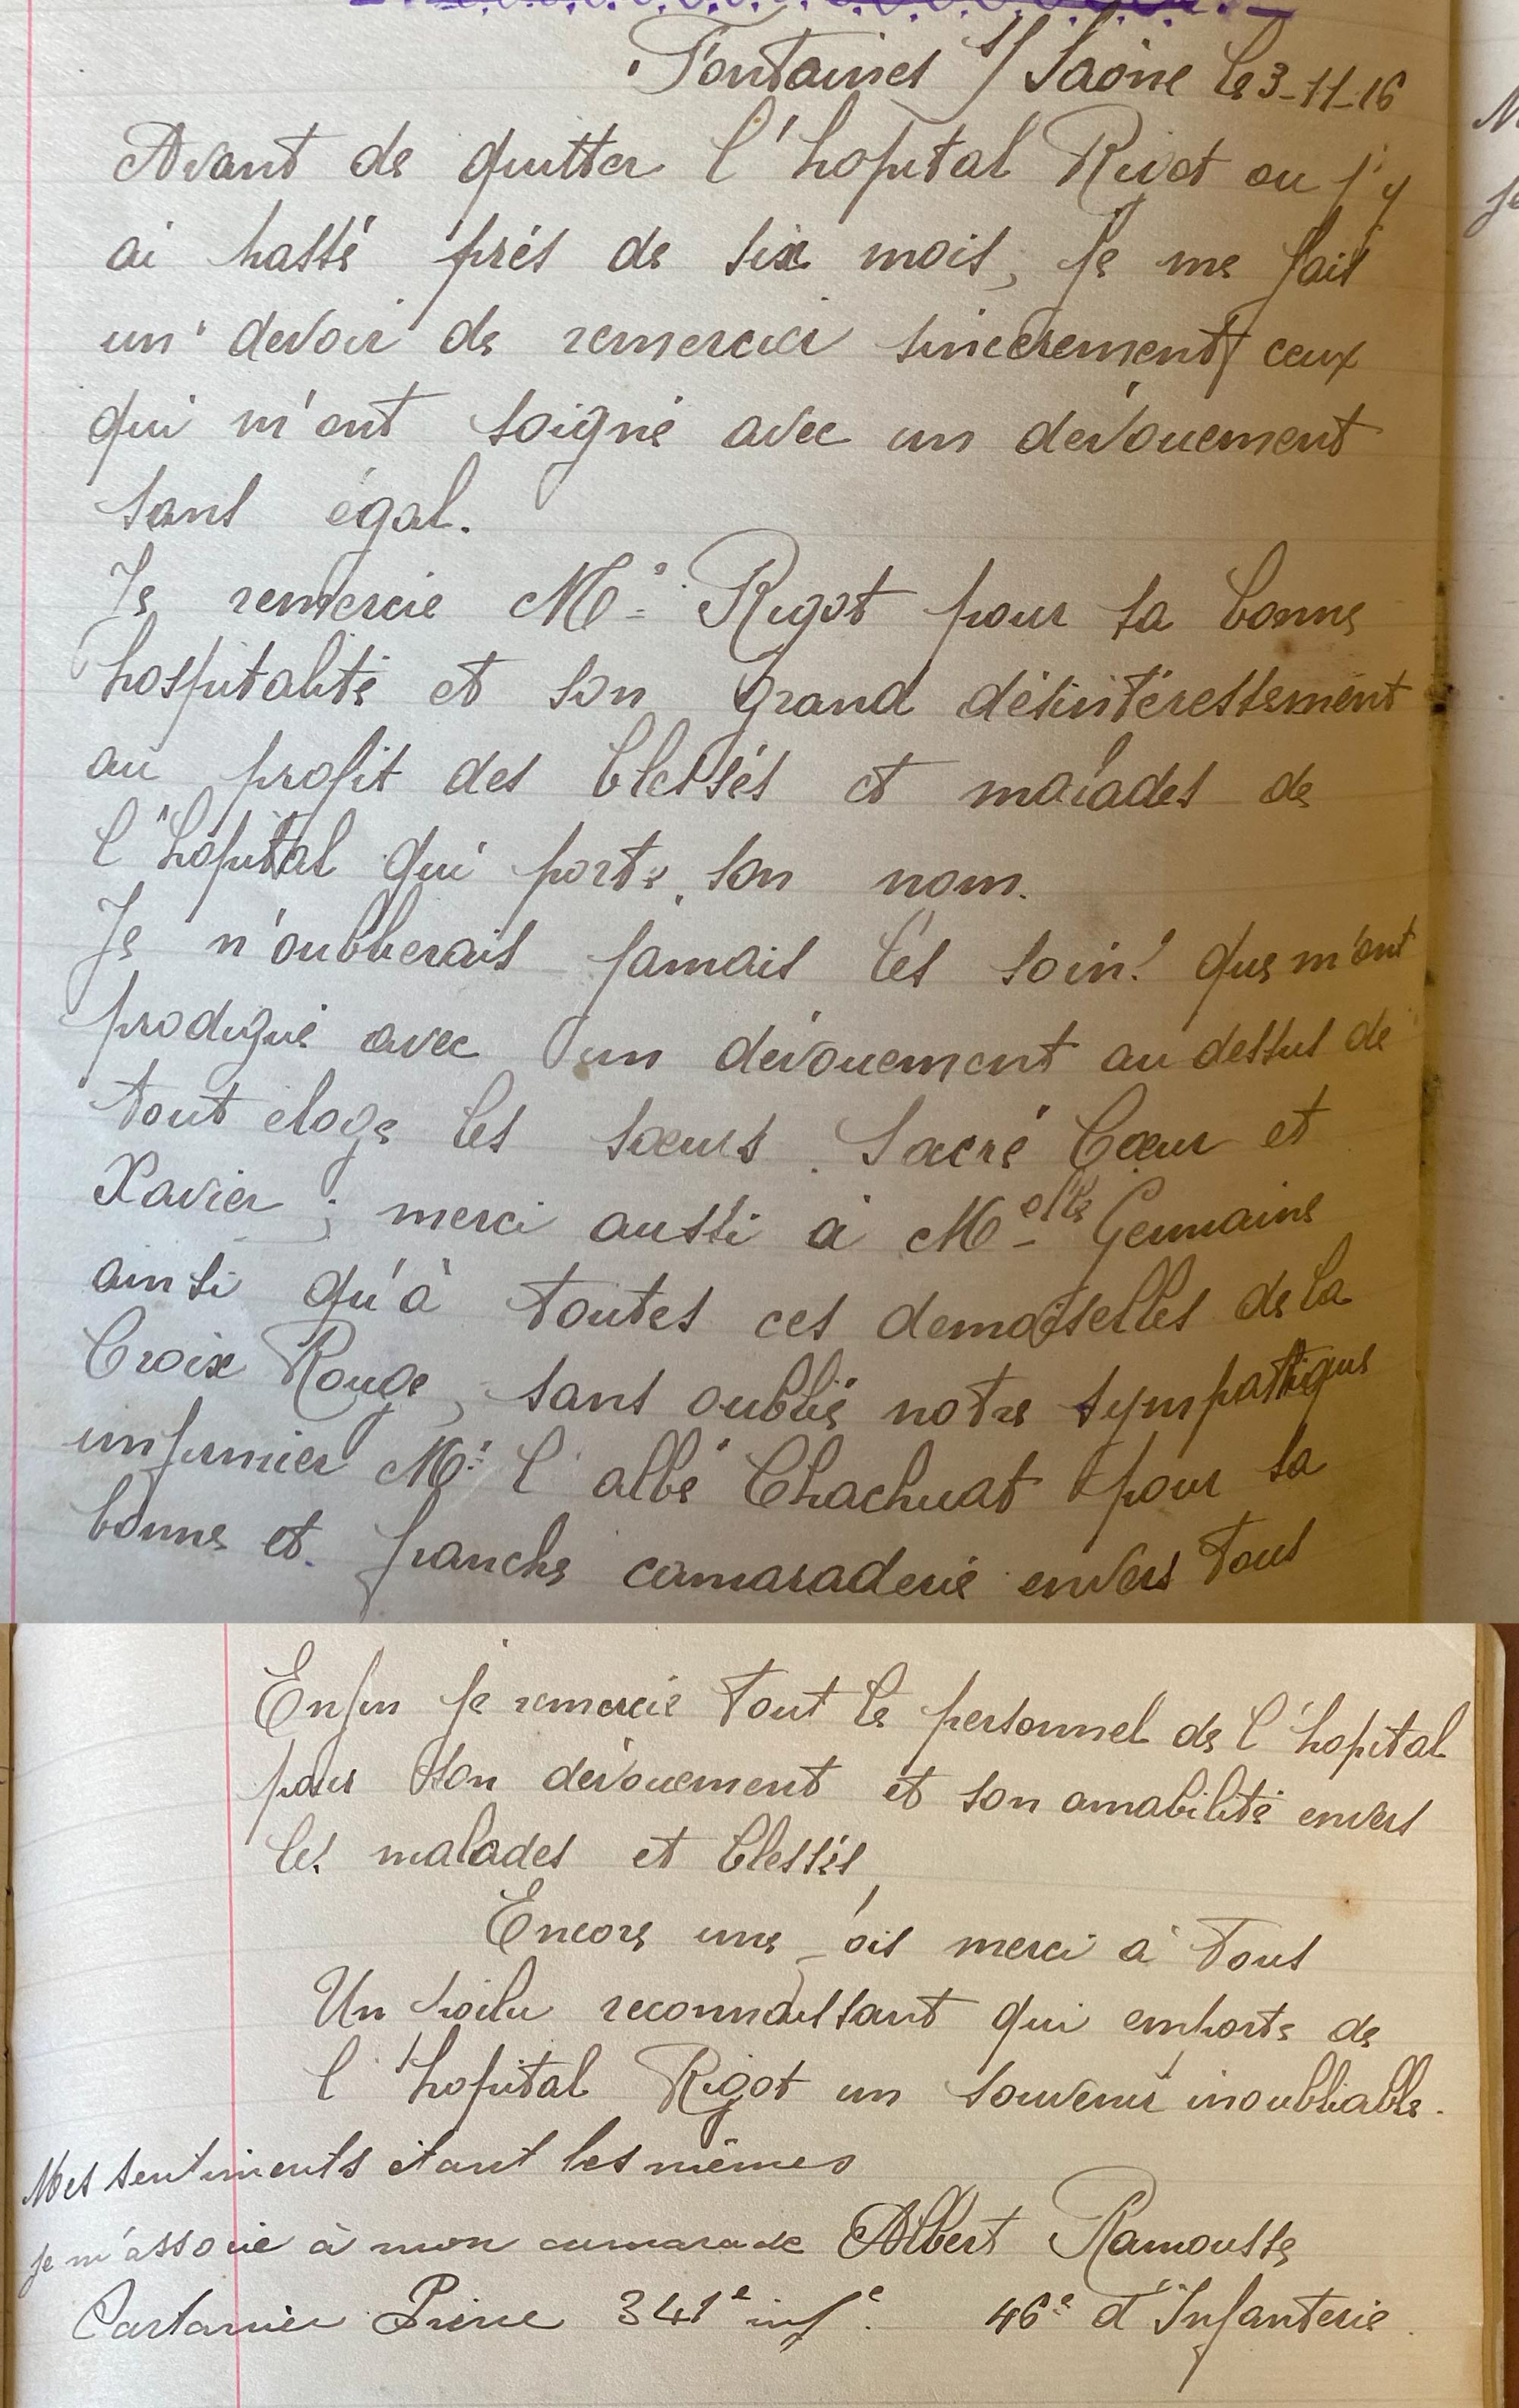 Fontaines s/ Saône le 3-11-16
Avant de quitter l'hopital Rivot ou j'y
ai passé prés de six mois, je me fait
un devoir de remercier sincérement ceux
qui m'ont soigné avec un dévouement
sans égal.
Je remercie Mr Rigot pour sa bonne
hospitalité et son grand désintéressement
au profit des blessés et malades de
l'hôpital qui porte son nom.
Je n'oublierais jamais les soins que m'ont
prodigué avec un dévouement au dessus de
tout eloge les sœurs Sacré Cœur et
Xavier ; merci aussi à Melle Germaine
ainsi qu'à toutes ces demoiselles de la
Croix Rouge, sans oublié notre sympatique
infirmier Mr l'abbé Chachuat pour sa
bonne et franche camaraderie envers tous
Enfin je remercie tout le personnel de l'hopital
pour son dévouement et son amabilité envers
les malades et blessés,
Encore une fois merci à tous
Un poilu reconnaissant qui emporte de
l'hopital Rigot un souvenir inoubliable.
Mes sentiments étant les mêmes
je m'associe à mon camarade Albert Ramousse
Cartannier Pierre 341e infie. 46e d'Infanterie.